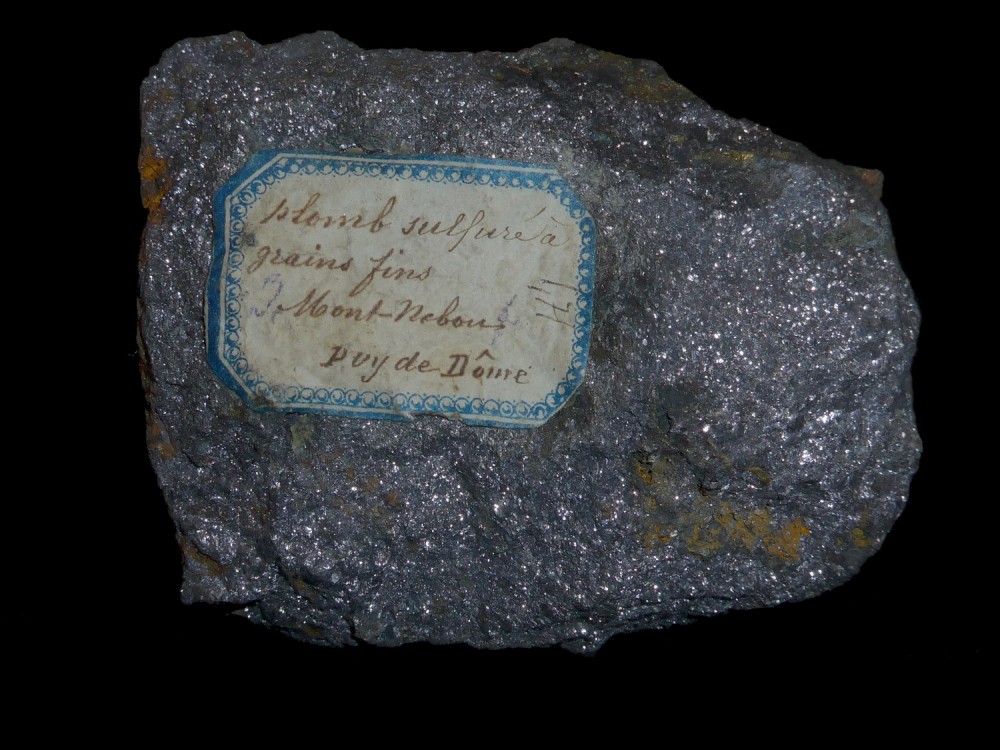 plomb sulfuré à
grains fins
Mont-Nebou
Puy de Dôme